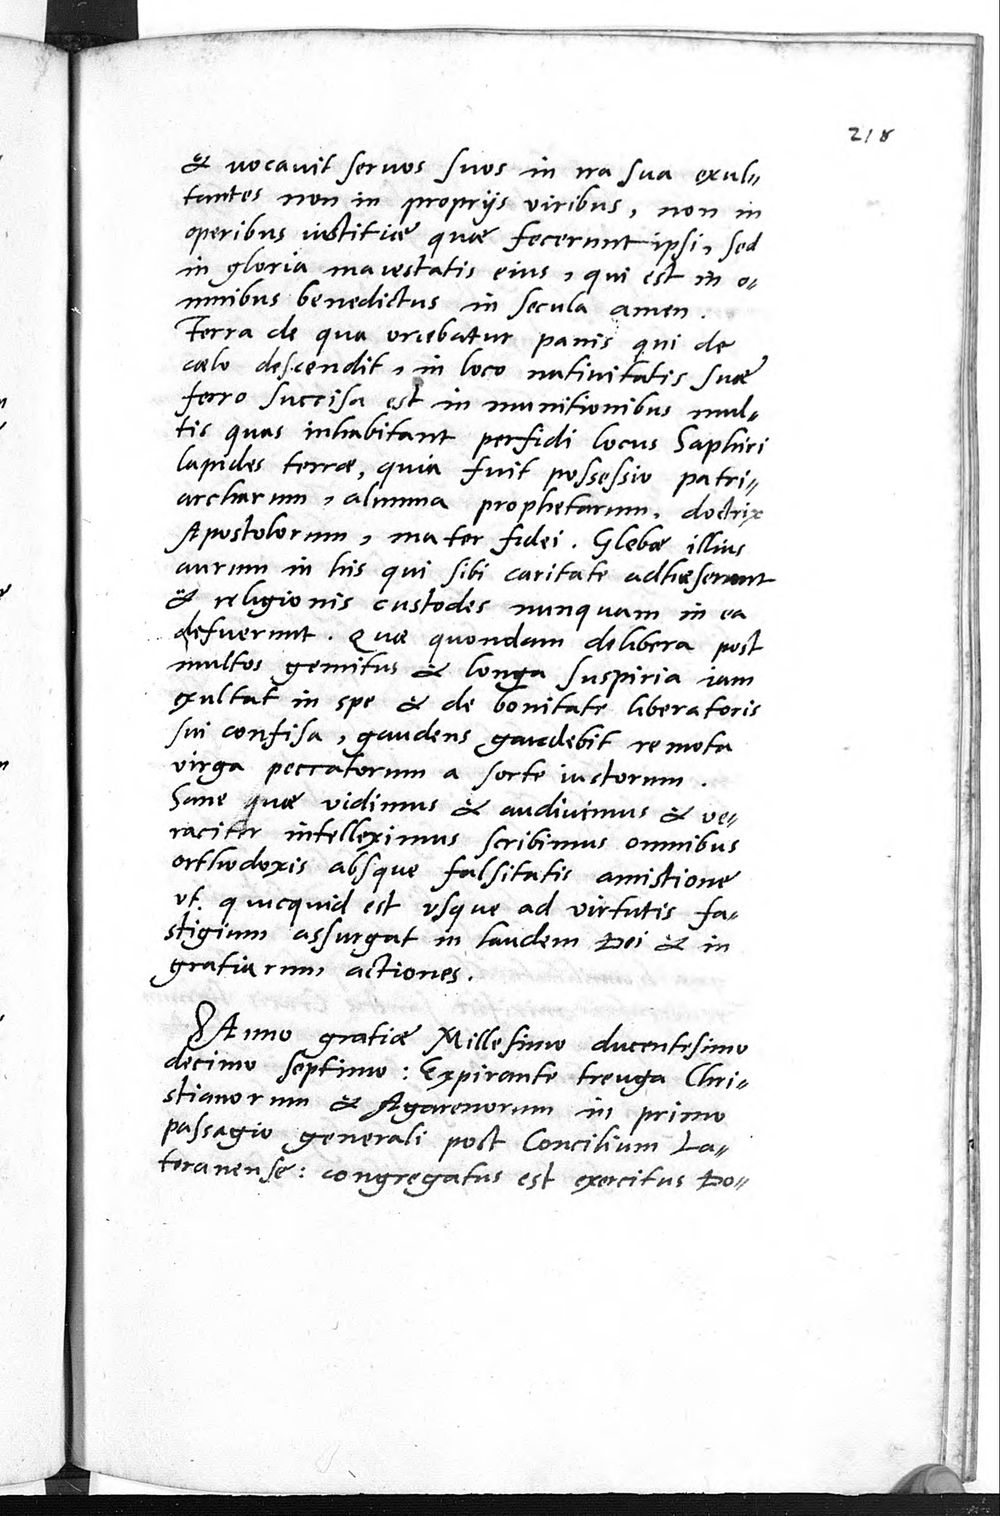 218
& vocavit servos suos in ira sua exul=
tantes non in proprijs viribus, non in
operibus iustitiæ quæ fecerunt ipsi, sed
in gloria maiestatis eius, qui est in o=
mnibus benedictus in secula amen.
Terra de qua oriebatur panis qui de
cælo descendit, in loco nativitatis suæ
ferro succisa est in munitionibus mul=
tis quas inhabitant perfidi locus Saphiri
lapides terræ, quia fuit possessio patri=
archarum, alumna prophetarum, doctrix
Apostolorum, mater fidei. Glebæ illius
aurum in his qui sibi caritate adhæserunt
& religionis custodes nunquam in ea
defuerunt. Quæ quondam delibera post
multos gemitus & longa suspiria iam
exultat in spe & de bonitate liberatoris
sui confisa, gaudens gaudebit remota
virga peccatorum a sorte iustorum.
Sane quæ vidimus & audivimus & ve=
raciter intelleximus scribimus omnibus
orthodoxis absque falsitatis amistione
ut. quicquid est usque ad virtutis fa=
stigium assurgat in laudem Dei & in
gratiarum actiones.
Anno gratiæ Millesimo ducentesimo
decimo septimo: Expirante treuga Chri=
stianorum & Agarenorum in primo
passagio generali post Concilium La=
teranense: congregatus est exercitus Do=